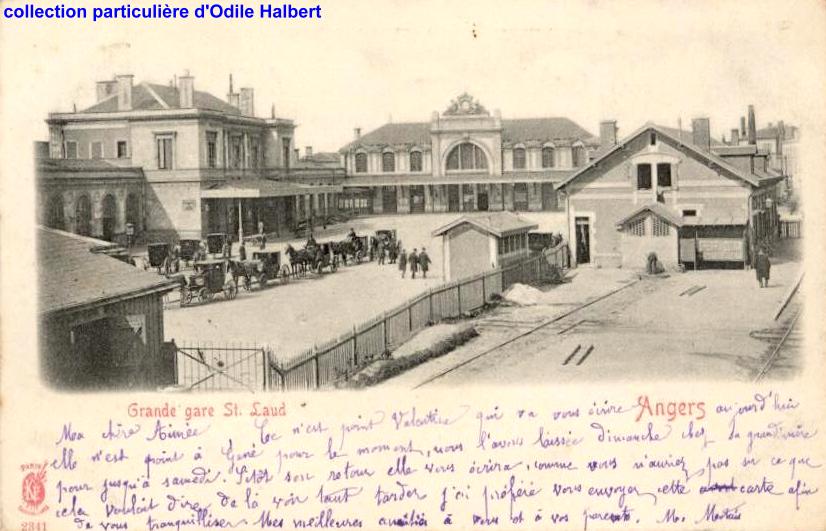 collection particulière d'Odile Halbert
Grande gare St. Laud
Angers
Ma chère Aimée Ce n'est point Valentine qui va vous écrire aujourd'hui
elle n'est point à Gené pour le moment, nous l'avons laissée dimanche chez sa grand'mère
pour jusqu'à samedi. Sitôt son retour elle vous écrira, comme vous n'auriez pas su ce que
cela voulait dire, de la voir tant tarder j'ai préféré vous envoyer cette carte afin
de vous tranquilliser. Mes meilleures amitiés à vous et à vos parents. M.
PARIS
2841